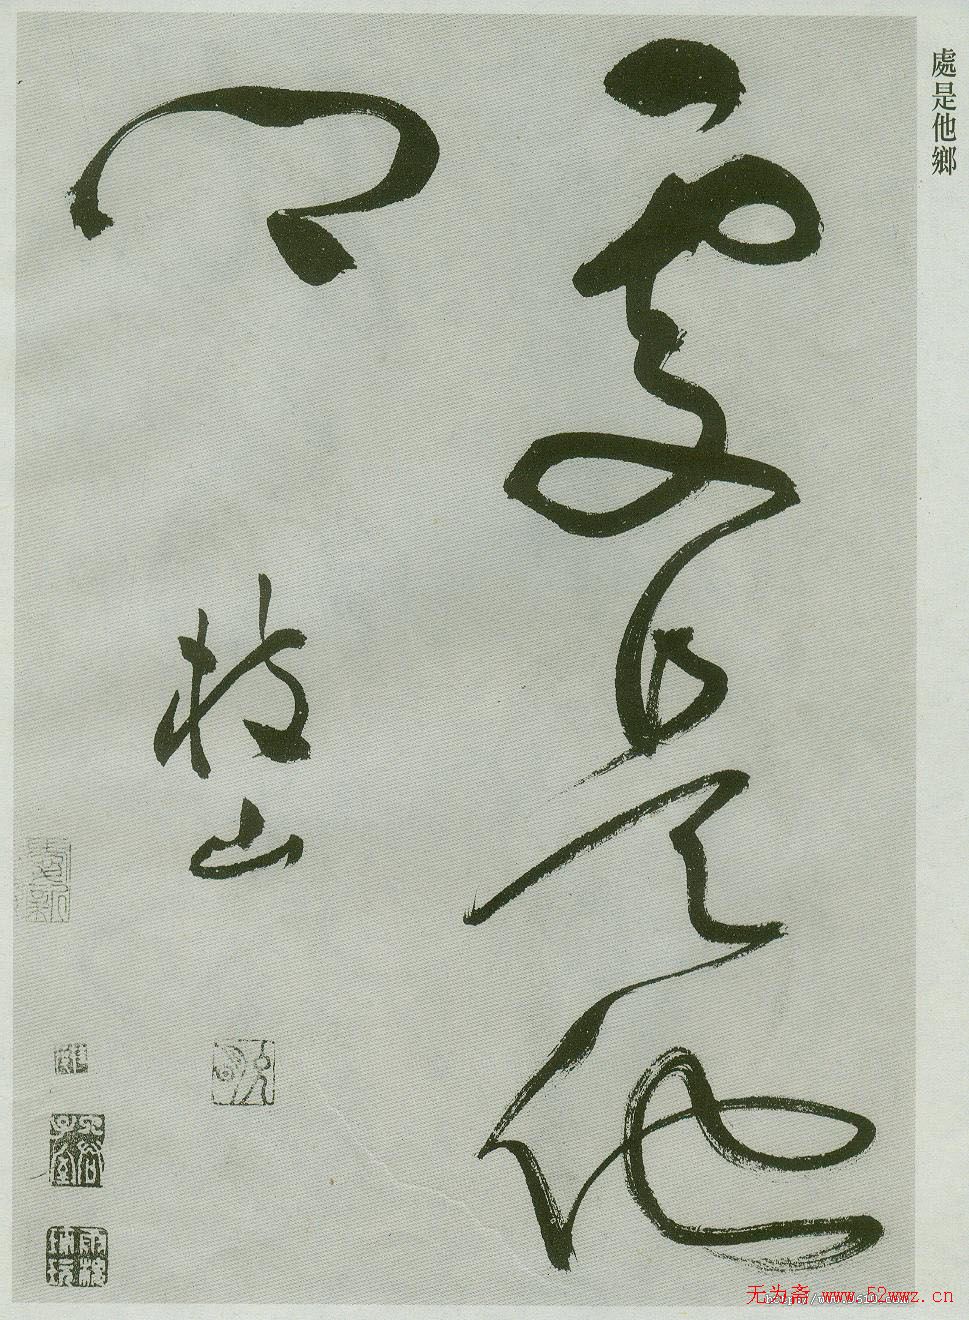 處是他鄉
處是他
鄉
枝山
无为斋 www.52wwz.cn